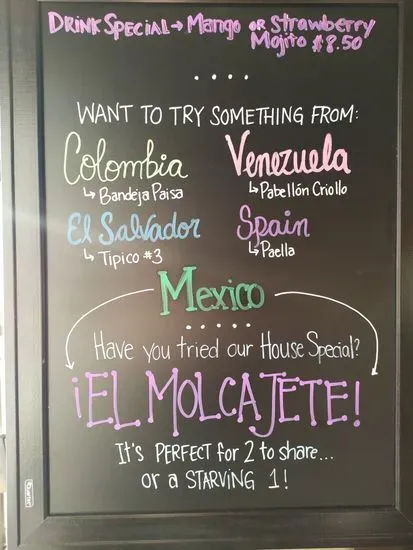 DRINK SPECIAL → MANGO OR STRAWBERRY
MOJITO $8.50
WANT TO TRY SOMETHING FROM:
Colombia
↳ Bandeja Paisa
Venezuela
↳ Pabellón Criollo
El Salvador
↳ Tipico #3
Spain
↳ Paella
Mexico
Have you tried our House Special?
¡EL MOLCAJETE!
It's PERFECT for 2 to share...
or a STARVING 1!